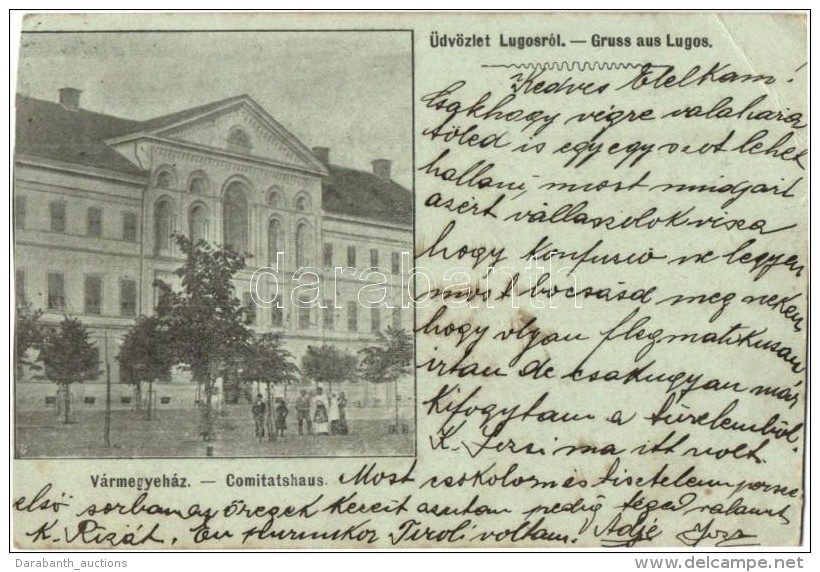 Üdvözlet Lugosról. — Gruss aus Lugos.
Kedves Etelkam!
Csakhogy végre valahára
tőled is egy egy szot lehet
hallani, most mindjárt
azért vállaszolok visza
hogy konfuzió ne legyen
most bocsásd meg nekem,
hogy olyan flegmatikusan
irtam de csakugyan már
kifogytam a türelemből.
K. ma itt volt.
Vármegyeház. — Comitatshaus. Most csokolom és tisztelem persze
első sorban az öregek kezeit azutan pedig téged valamint
K. Rizát. En Tiroli voltam. Adje
darabanth
Darabanth_auctions
www.delcampe.net